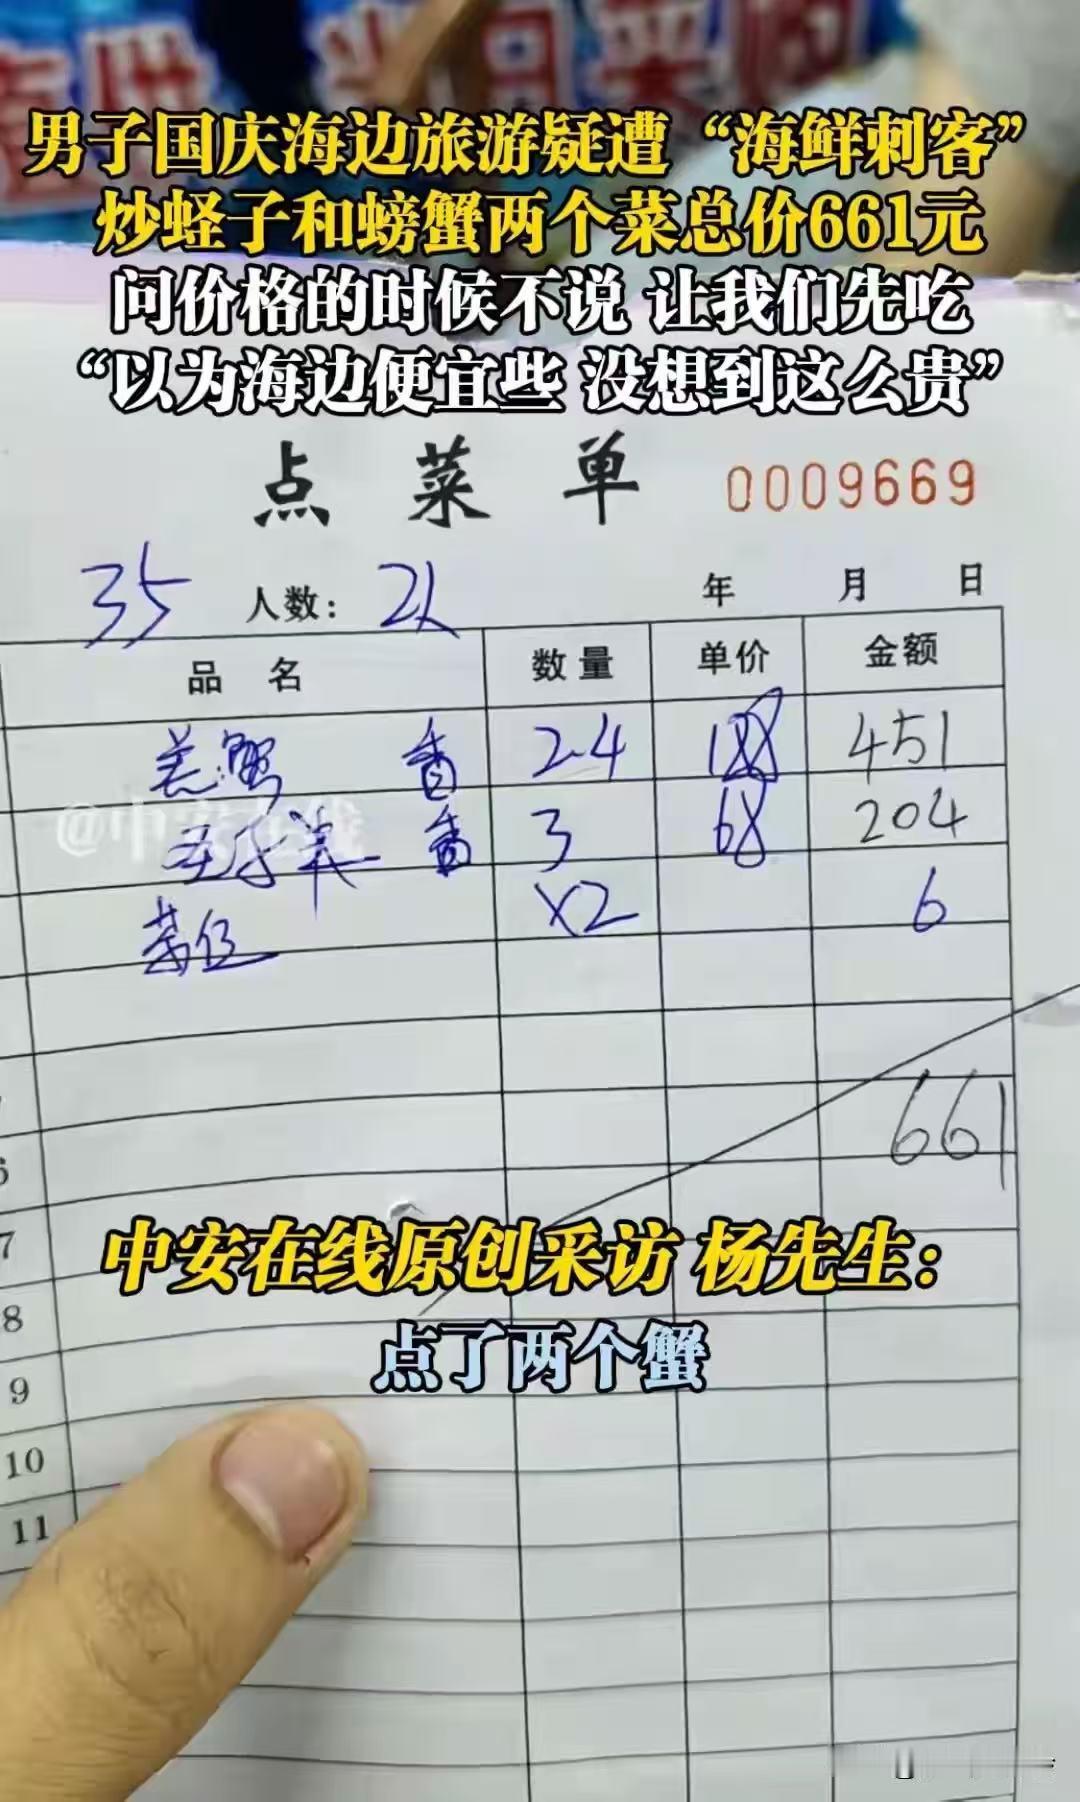 男子国庆海边旅游疑遭“海鲜刺客”
炒蛏子和螃蟹两个菜总价661元
问价格的时候不说 让我们先吃
“以为海边便宜些 没想到这么贵”
点菜单 0009669
35 人数: 2人 年 月 日
品名 数量 单价 金额
羔蟹 香 2.4 188 451
@中安在线
香 3 68 204
茶位 x2 6
661
6
7
中安在线原创采访 杨先生:
8
点了两个蟹
9
10
11